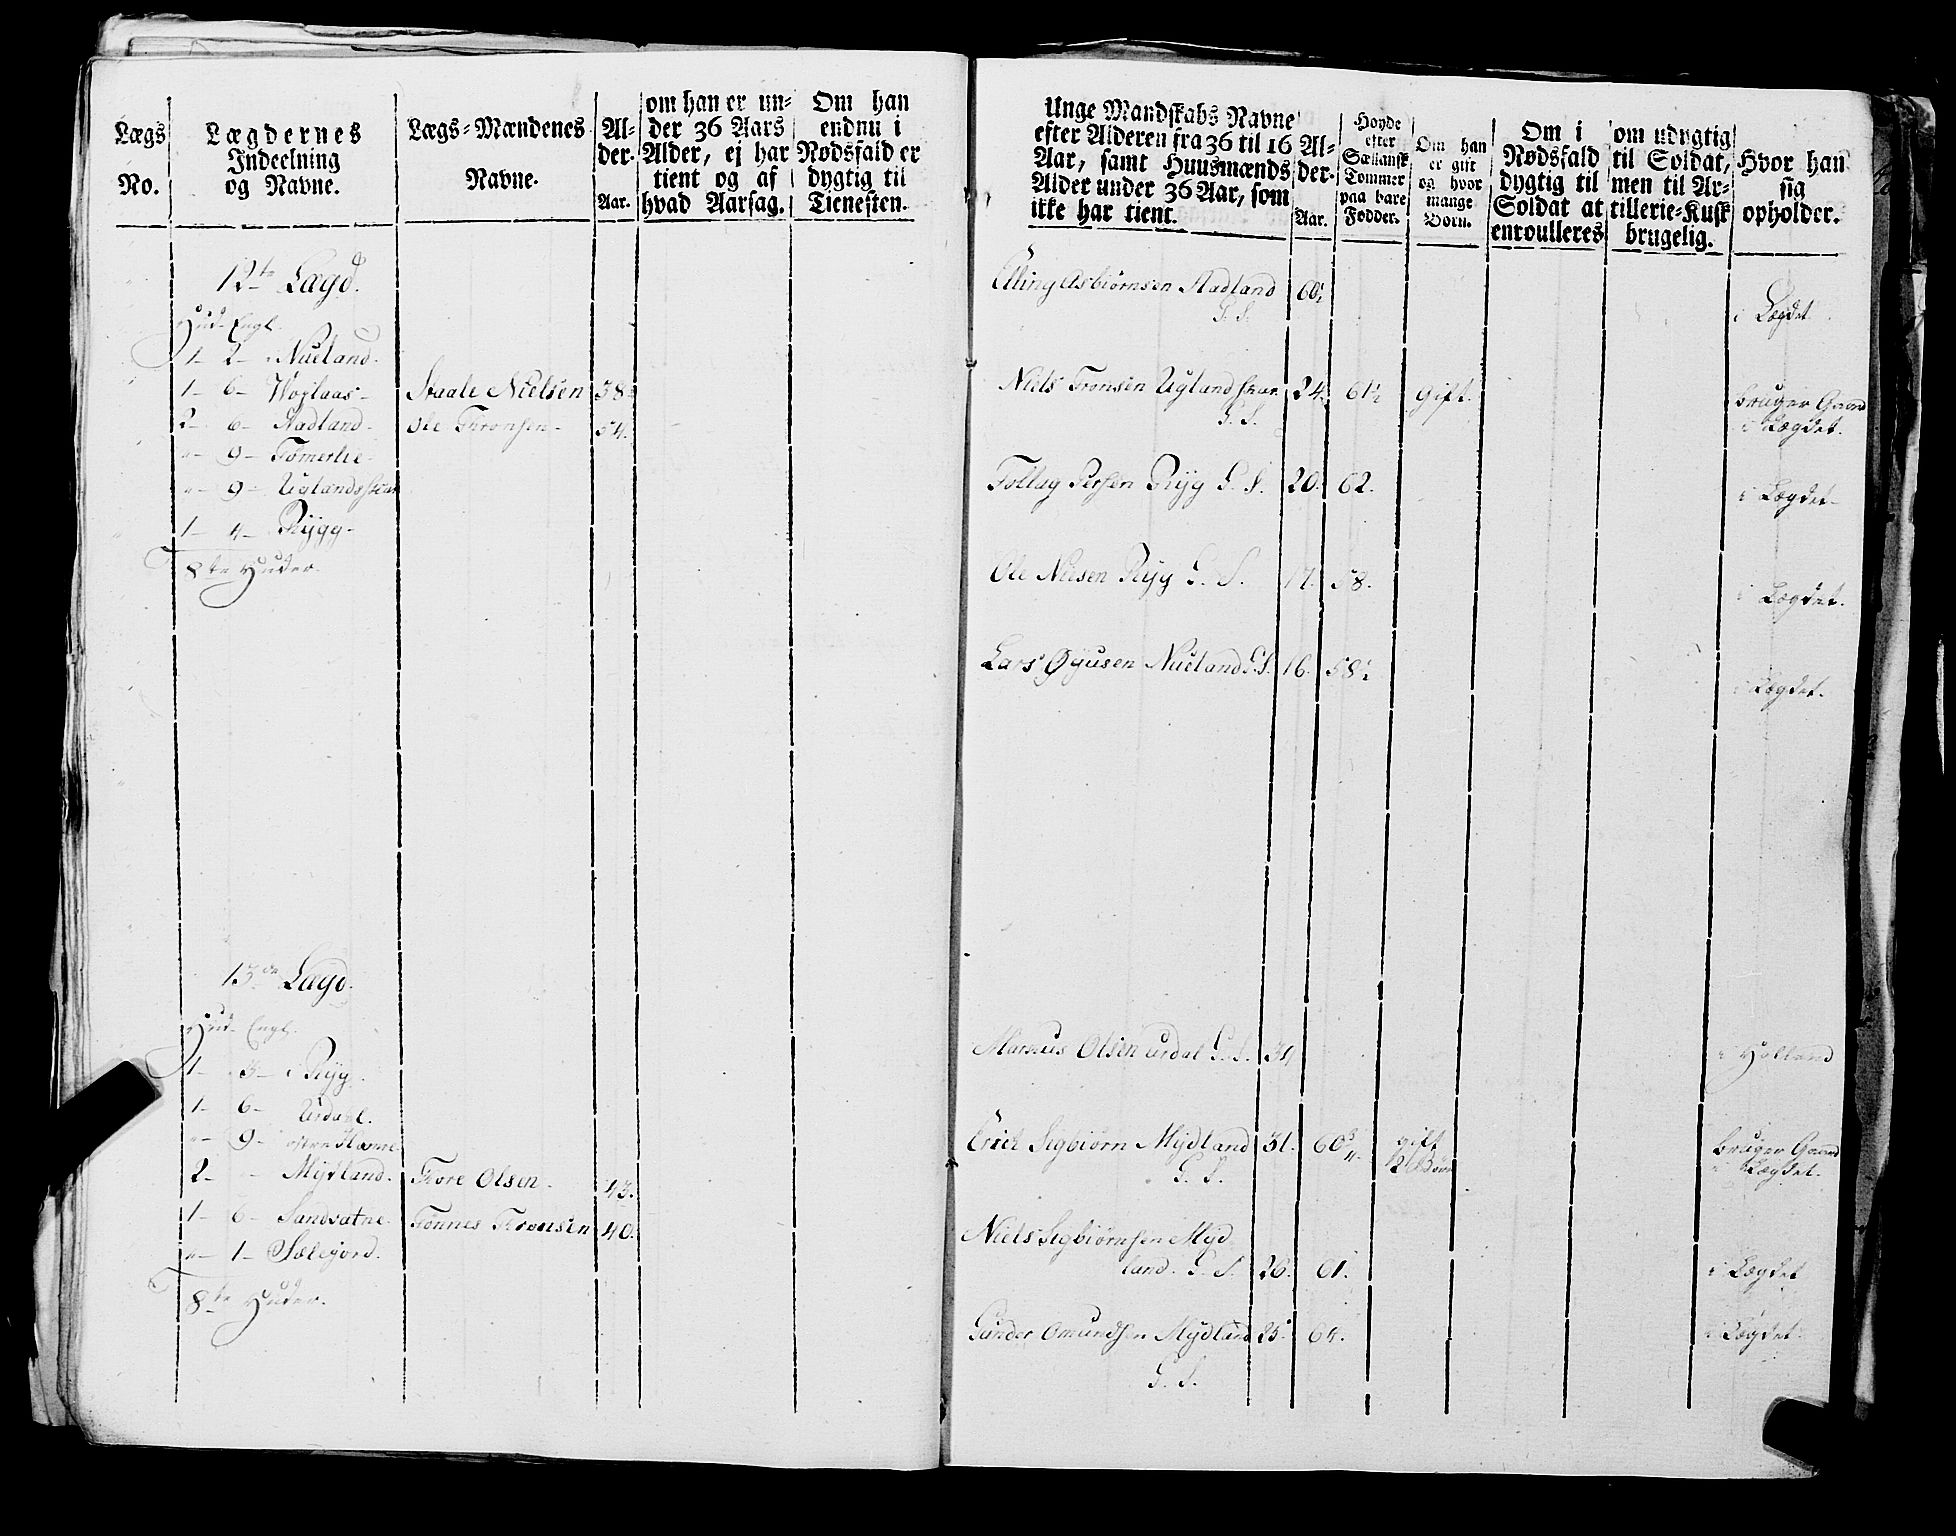 Lægs
No.
Lægdernes
Indeelning
og Navne.
Lægs-Mændenes
Navne.
Al-
der.
Aar.
om han er un-
der 36 Aars
Alder, ej har
tient og af
hvad Aarsag.
Om han
endnu i
Nødsfald er
dygtig til
Tienesten.
12te Lægd.
Hud- Engl.
1- 2- Nueland-
1- 6- Staale Nielsen 38
2- 6- Stadland- Ole Thronsen- 54.
"- 9- Tømerlie-
"- 9- Uglandsskar
1- 4- Rygg-
8te Huder.
13de Lægd.
Hud- Engl.
1- 3- Ryg.
1- 6- Urdahl.
"- 9-
2- - Mydland- Tore Olsen- 43.
1- 6- Sandvatne- Tønnes Tronsen 40.
"- 1- Sælegjord.
8te Huder.
Unge Mandskabs Navne
efter Alderen fra 36 til 16
Aar, samt Huusmænds
Alder under 36 Aar, som
ikke har tient.
Al-
der.
Aar.
Høyde
efter
Sællansk
Tommer
paa bare
Fødder.
Om han
er gift
og hvor
mange
Børn.
Om i
Nødsfald
dygtig til
Soldat at
enroulleres
om udygtig
til Soldat,
men til Ar-
tillerie-Kusk
brugelig.
Hvor han
sig
opholder.
Elling Asbiørnsen Stadland 60½
G. S. i Lægdet.
Niels Tronsen Uglandskar 24. 61½ gift. bruger Gaard
G. S. i Lægdet.
Tollag Persen Ryg G. S. 20. 62. i Lægdet-
Ole Nilsen Ryg G. S. 17. 58. i Lægdet.
Lars Øyusen Nueland G.S. 16. 58½ i Lægdet.
Markus Olsen Urdal G. S. 34 i Holland
Erich Sigbiørn Mydland 31. 60¾. gift bruger Gaard
G. S. 2 Børn i Lægdet.
Niels Sigbiørnsen Myd
land. G. S. 26. 61. i Lægdet
Gunder Omundsen Mydland 25. 64. i Lægdet.
G. S.